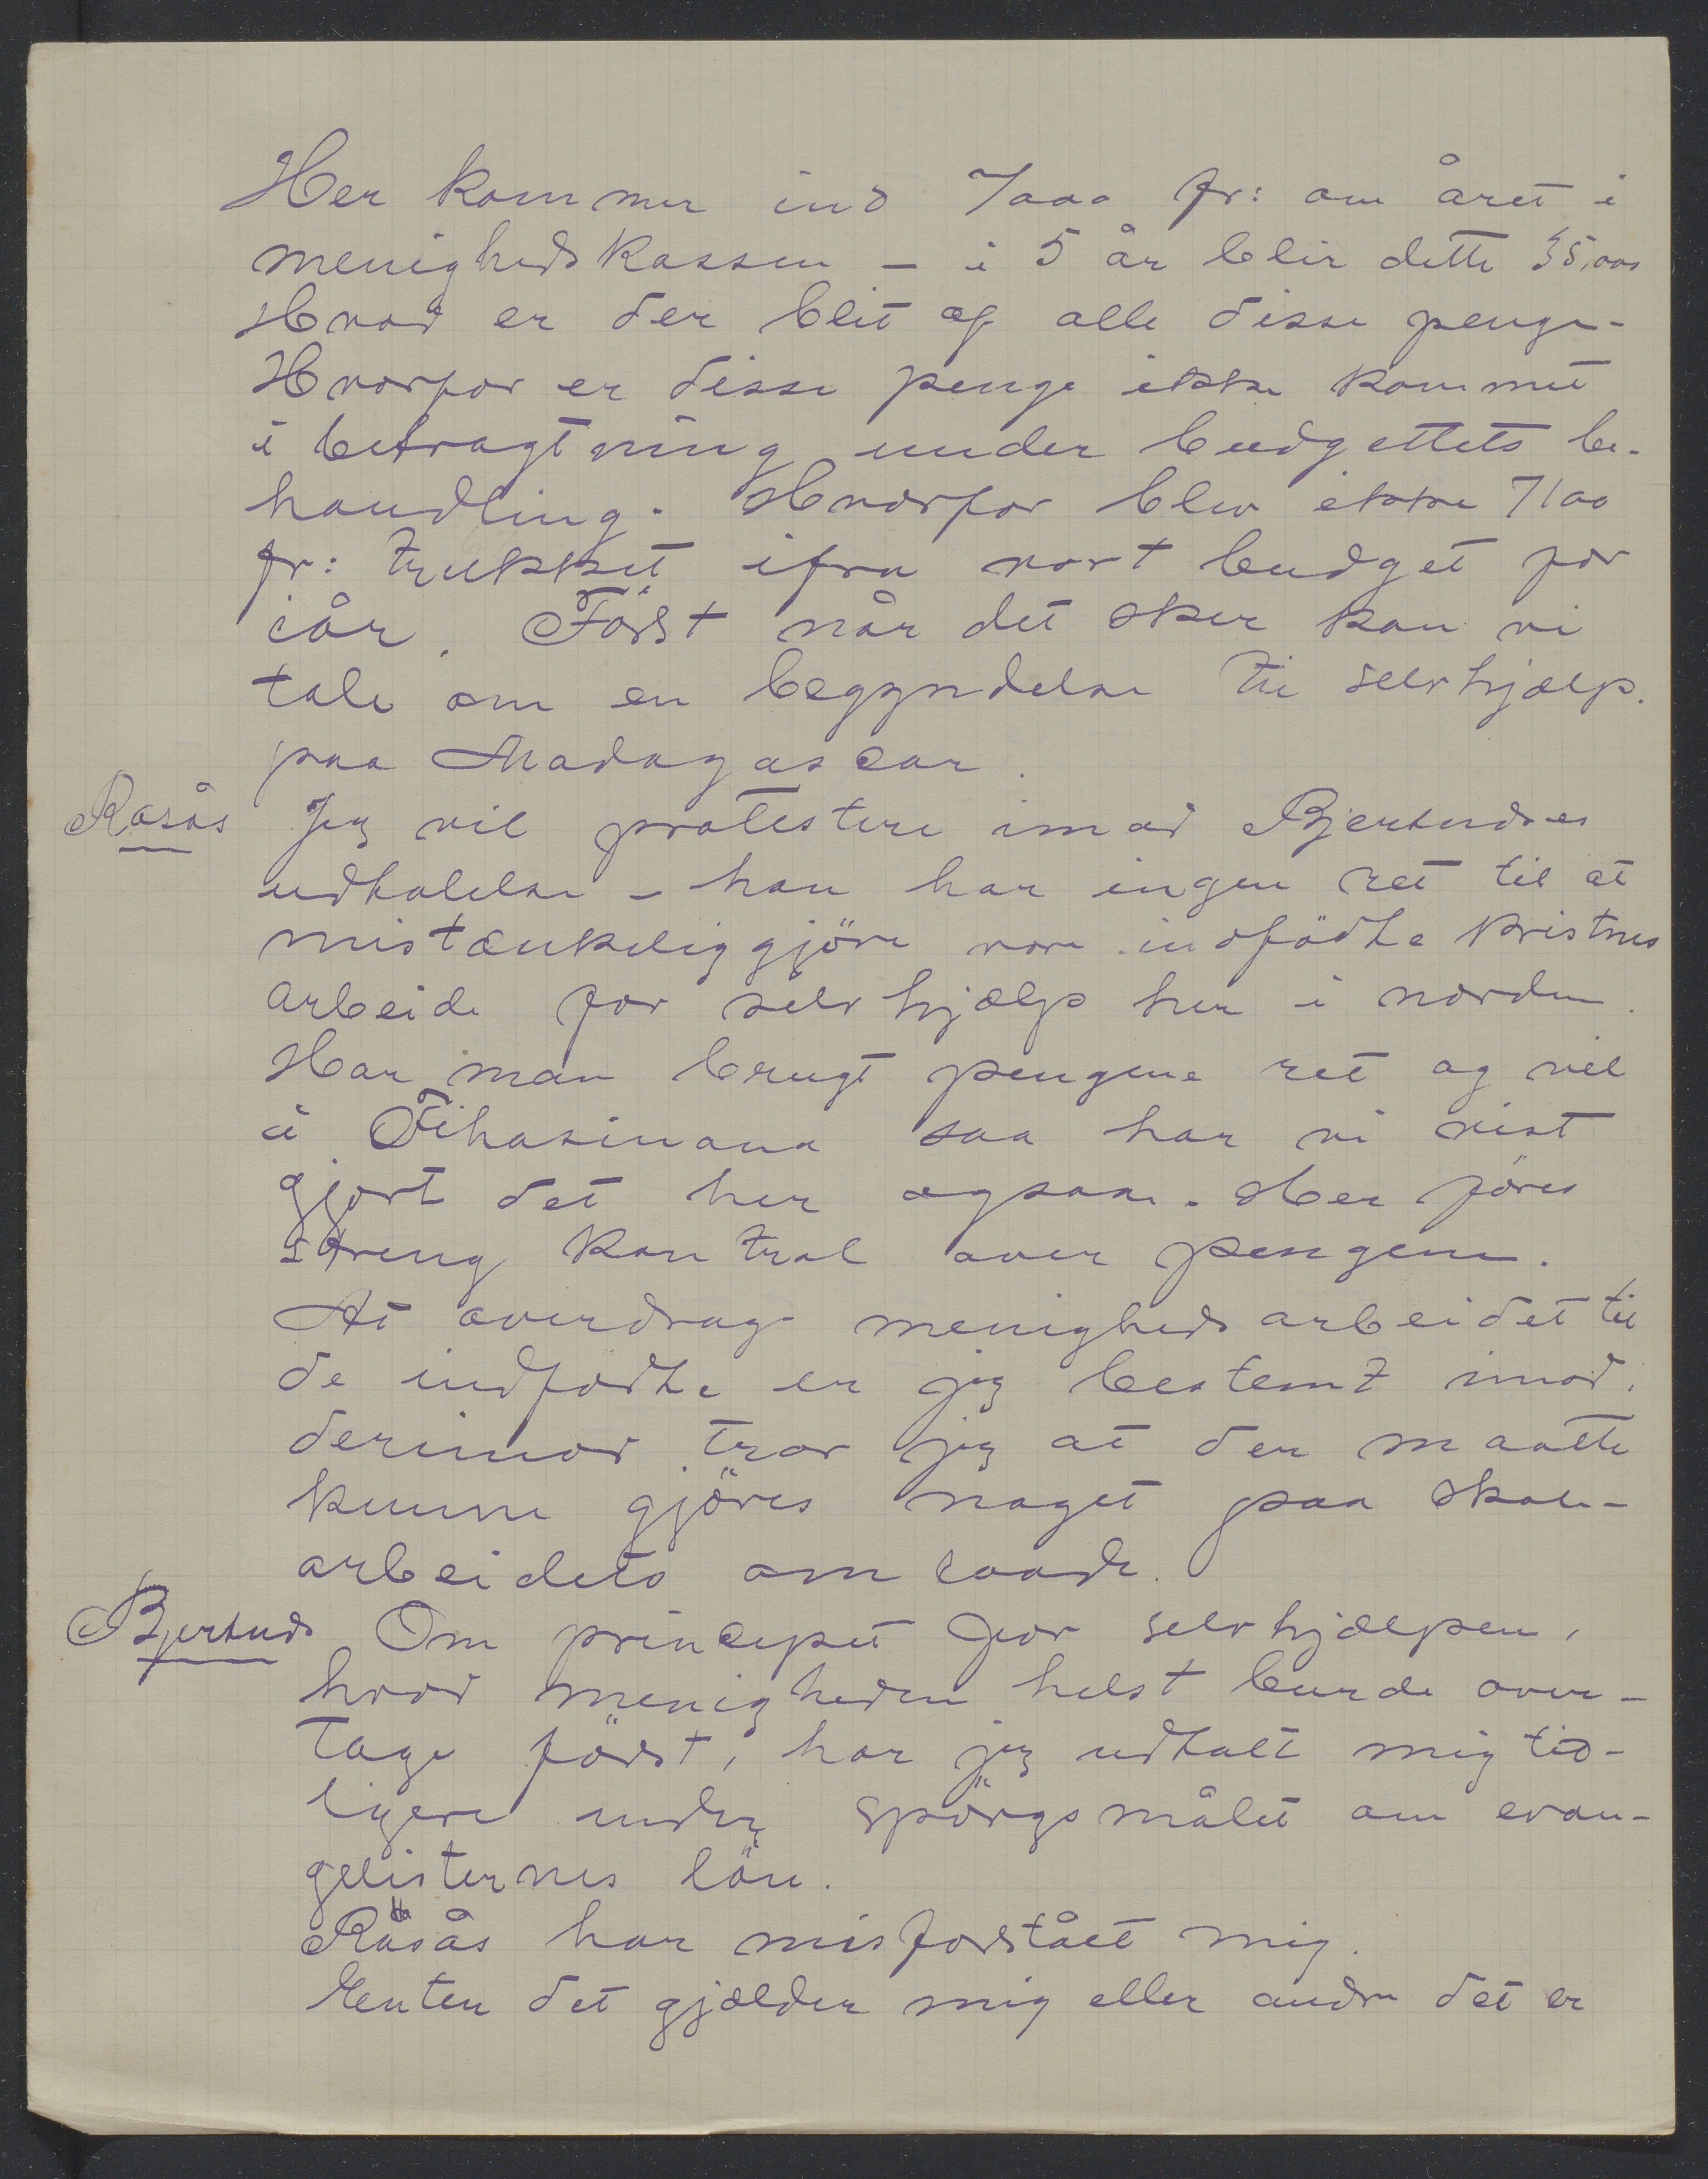 Her kommer ind 7000 fr: om året i
menighedskassen – i 5 år blir dette 35,000
Hvad er der blit af alle disse penge –
Hvorfor er disse penge ikke kommet
i betragtning under budgettets be-
handling. Hvorfor blev ikke 7100
fr: trukket ifra vort budget for
iår. Först når det sker kan vi
tale om en begyndelse til selvhjælp.
paa Madagascar.
Rasås Jeg vil protestere imod Bjertnæs
udtalelse – han har ingen ret til at
mistænkeliggjöre vore indfödte kristnes
arbeide for selvhjælp her i norden.
Har man brugt pengene ret og vel
i Fihasinana saa har vi vist
gjort det her ogsaa. Her föres
streng kontrol over pengene.
At overdrage menighedsarbeidet til
de indfödte er jeg bestemt imod,
derimod tror jeg at der maatte
kunne gjöres noget paa skole-
arbeidets omraade.
Bjertnæs Om princepet for selvhjælpen,
hvad menigheden helst burde over-
tage först, har jeg udtalt mig tid-
ligere under spörgsmålet om evan-
gelisternes lön.
Råsås har misforstået mig.
Enten det gjælder mig eller andre det er